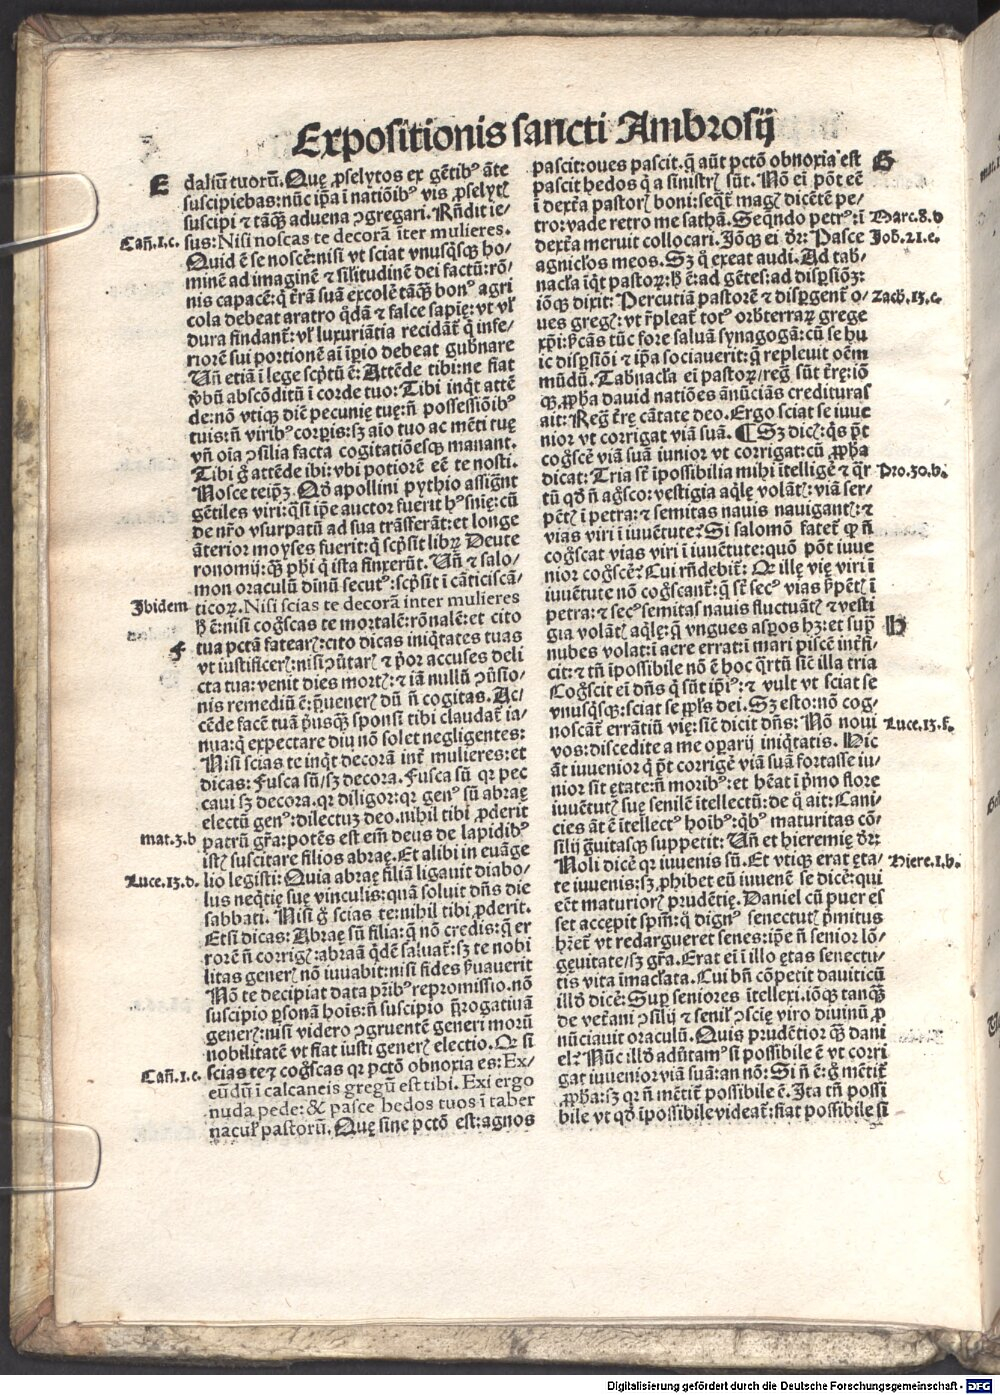 Expositionis sancti Ambrosij
E
daliū tuorū. Quę ꝓselytos ex gētibꝰ āte
suscipiebas: nūc ip̄a ī natiōibꝰ vis ꝓselytꝭ
suscipi ⁊ tāqȝ aduena ↄgregari. Rn̄dit ie⸗
Cañ.1.c. sus: Nisi noscas te decorā īter mulieres.
Quid ē se noscē: nisi vt sciat vnusqͥsqȝ ho⸗
minē ad imaginē ⁊ silitudinē dei factū: rō⸗
nis capacē: ꝙ t̄rā suā excolē tāqȝ bonꝰ agri
cola debeat aratro qd̄ā ⁊ falce sapię: vt vl̄
dura findant̄: vl̄ luxuriātia recidāt̄ ꝙ infe⸗
riorē sui portionē ai īꝑio debeat gub̄nare
Un̄ etiā ī lege scp̄tū ē: Attēde tibi: ne fiat
v̄bū abscōditū ī corde tuo: Tibi inqͥt attē
de: nō vtiqȝ diē pecunię tuę: n̄ possessiōibꝰ
tuis: n̄ viribꝰ corꝑis: sȝ aīo tuo ac mēti tuę
vn̄ oīa ↄsilia facta cogitatiōesqȝ manant.
Tibi g̊ attēde ibi: vbi potiorē eē te nosti.
Nosce teip̄ȝ. Qd̄ apollini pythio assigͣnt
gētiles viri: qͣsi ip̄e auctor fuerit hꝰ snīę: cū
de nr̄o vsurpatū ad sua trāsferāt: et longe
āterior moyses fuerit: ꝙ scp̄sit librꝝ Deute
ronomij: qȝ ph̄i ꝙ ista finxerūt. Un̄ ⁊ salo⸗
mon oraculū diuinū secutꝰ: scp̄sit ī cāticiscā⸗
Ibidem ticoꝝ. Nisi scias te decorā inter mulieres
h̄ ē: nisi cogͦscas te mortalē: rōnalē: et cito
F tua pctā fateārꝭ: cito dicas iniqͥtates tuas
vt iustificerꝭ: nisi ↄūtarꝭ ⁊ pͥor accuses deli
cta tua: venit dies mortꝭ: ⁊ iā nullū ↄūsio⸗
nis remediū ē: p̄uenerꝭ dū n̄ cogitas. Ac⸗
cēde facē tuā pͥusqȝ sponsi tibi claudat̄ ia⸗
nua: ꝙ expectare diu nō solet negligentes:
Nisi scias te inqͥt decorā int̄ mulieres: et
dicas: Fusca sū/ sȝ decora. Fusca sū qꝛ pec
caui sȝ decora. qꝛ diligor: qꝛ genꝰ sū abraę
electū genꝰ: dilectuȝ deo. nihil tibi ꝓderit
mat.3.b patrū gr̄a: potēs est em̄ deus de lapidibꝰ
istꝭ suscitare filios abraę. Et alibi in euāge
Luce.13.d. lio legisti: Quia abraę filiā ligauit diabo⸗
lus neqͥtię suę vinculis: quā soluit dn̄s die
sabbati. Nisi g̊ scias te: nihil tibi ꝓderit.
Etsi dicas: Abraę sū filia: ꝙ nō credis: ꝙ er
rorē n̄ corrigꝭ: abraā qͥdē saluat̄: sȝ te nobi
litas generꝭ nō iuuabit: nisi fides p̄uauerit
Nō te decipiat data pr̄ibꝰ repromissio. nō
suscipio ꝑsonā hois: n̄ suscipio p̄rogatiuā
generꝭ: nisi videro ↄgruentē generi morū
nobilitatē vt fiat iusti generꝭ electio. Qꝛ si
Cañ.1.c. scias te ⁊ cogͦscas qꝛ pctō obnoxia es: Ex⸗
eūdū ī calcaneis gregū est tibi. Exi ergo
nuda pede: & pasce hedos tuos ī taber
nacul̄ pastorū. Quę sine pctō est: agnos
pascit: oues pascit. ꝙ aūt pctō obnoxia est G
pascit hedos ꝙ a sinistrꝭ sūt. Nō ei pōt eē
ī dext̄a pastorꝭ boni: seqͥt̄ magꝭ dicētē pe⸗
tro: vade retro me sathā. Seqͣndo petrꝰ: ī Marc.8.d
dext̄a meruit collocari. Iōqȝ ei dr̄: Pasce Joh.21.e.
agniclos meos. Sȝ ꝙ exeat audi. Ad tab̄⸗
nacl̄a īqͥt pastoꝝ: h̄ ē: ad gētes: ad disꝑsiōȝ:
iōqȝ dixit: Percutiā pastorē ⁊ disꝑgent̄ o⸗ Zach.13.c.
ues gregꝭ: vt r̄pleat̄ totꝰ orb̄terraꝝ grege
xp̄i: p̄cās tūc fore saluā synagogā: cū se hu
ic disꝑsiōi ⁊ ip̄a sociauerit: ꝙ repleuit oēm
mūdū. Tab̄nacl̄a ei pastoꝝ/ regͣ sūt t̄rę: iō
qȝ ꝓph̄a dauid natiōes anūciās credituras
ait: Regͣ t̄rę cātate deo. Ergo sciat se iuue
nior vt corrigat viā suā. ¶ Sȝ dicꝭ: qͥs pͣt
cogͦscē viā suā iunior vt corrigat: cū ꝓph̄a
dicat: Tria st̄ īpossibilia mihi ītelligē ⁊ qͣr Pro.30.b.
tū qd̄ n̄ agͦsco: vestigia aqͥlę volātꝭ: viā ser⸗
pētꝭ ī petra: ⁊ semitas nauis nauigantꝭ: ⁊
vias viri ī iuuētute: Si salomō fatet̄ ꝙ n̄
cogͦscat vias viri ī iuuētute: quō pōt iuue
nior cogͦscē: Cui rn̄debit̄: Qꝛ illę vię viri ī
iuuētute nō cogͦscant̄: ꝙ st̄ secꝰ vias s̄pētꝭ ī
petra: ⁊ secꝰ semitas nauis fluctuātꝭ ⁊ vesti
gia volātꝭ aqͥlę: ꝙ vngues asꝑos hȝ: et suꝑ H
nubes volat: ī aere errat: ī mari piscē int̄fi⸗
cit: ⁊ tn̄ īpossibile nō ē hoc qͣrtū sic̄ illa tria
Cogͦscit ei dn̄s ꝙ sūt ip̄iꝰ: ⁊ vult vt sciat se
vnusqͥsqȝ: sciat se ꝓp̄ls dei. Sȝ esto: nō cog⸗
noscāt̄ errātiū vię: sic̄ dicit dn̄s: Nō noui Luce.13.f.
vos: discedite a me oꝑarij iniqͥtatis. Hic
āt iuuenior ꝙ pͣt corrigē viā suā fortasse iu⸗
nior sit ętate: n̄ moribꝰ: et hēat ī pͥmo flore
iuuētutꝭ suę senilē ītellectū: de ꝙ ait: Cani⸗
cies āt ē ītellectꝰ hoibꝰ: qͥbꝰ maturitas cō⸗
silij gͣuitasqȝ suppetit: Un̄ et hieremię dr̄:
Noli dicē qꝛ iuuenis sū. Et vtiqȝ erat ęta⸗ Hiere.1.b.
te iuuenis: sȝ ꝓhibet eū iuuenē se dicē: qui
eēt maturiorꝭ prudētię. Daniel cū puer es
set accepit spm̄: ꝙ dignꝰ senectutꝭ pͥmitus
hr̄et vt redargueret senes: ip̄e n̄ senior lō⸗
gęuitate/ sȝ gr̄a. Erat ei ī illo ętas senectu⸗
tis vita īmacl̄ata. Cui bn̄ cōpetit dauiticū
illd̄ dicē: Suꝑ seniores ītellexi. iōqȝ tanqȝ
de vet̄ani ↄsilij ⁊ senil̄ ↄscię viro diuinū ꝓ
nūciauit oraculū. Quis prudētior qȝ dani
el: Nūc illd̄ adūtamꝰ si possibile ē vt corri
gat iuuenior viā suā: an nō: Si n̄ ē: g̊ mētit̄
ꝓph̄a: sȝ qꝛ n̄ mētit̄ possibile ē. Ita tn̄ possi
bile vt qd̄ īpossibile videat̄: fiat possibile si
Digitalisierung gefördert durch die Deutsche Forschungsgemeinschaft - DFG